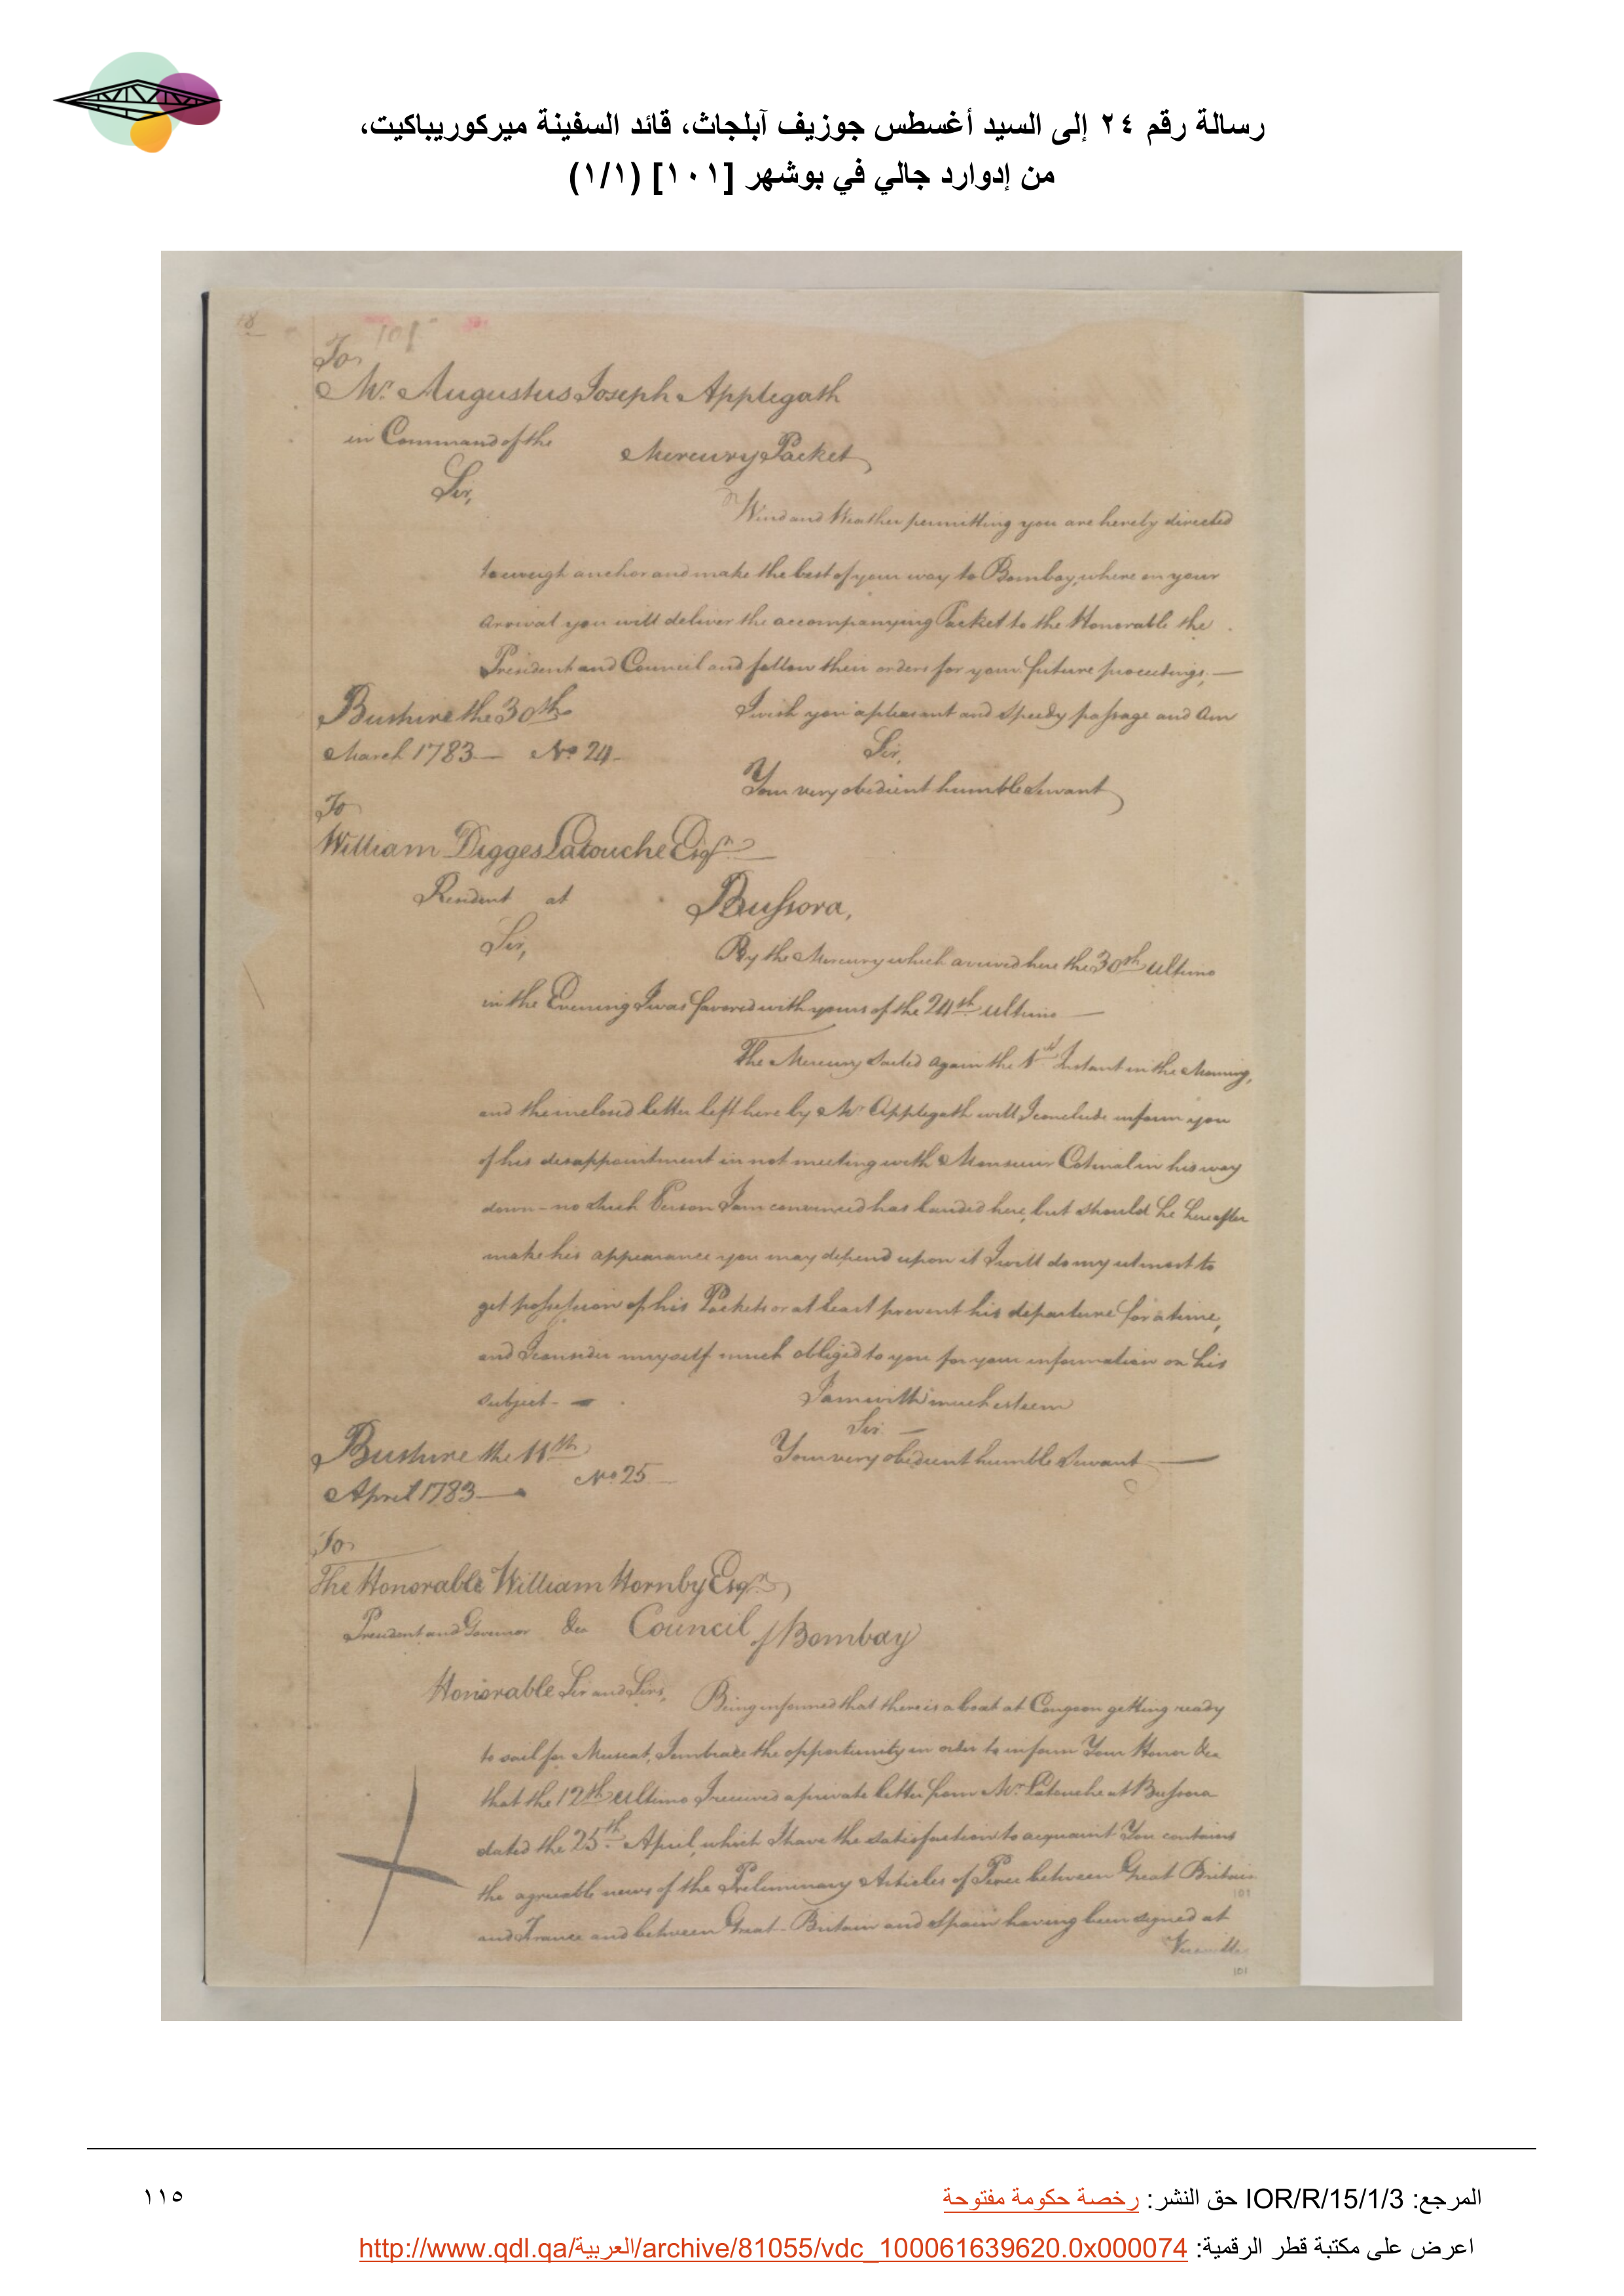 رسالة رقم ٢٤ إلى السيد أغسطس جوزيف آبلجاث، قائد السفينة ميركوريباكيت،
من إدوارد جالي في بوشهر [١٠١] (١/١)
18
101
To
Mr. Augustus Joseph Applegath
in Command of the Mercury Packet
Sir,
Wind and Weather permitting you are hereby directed
to weigh anchor and make the best of your way to Bombay, where on your
arrival you will deliver the accompanying Packet to the Honorable the
President and Council and follow their orders for your future proceedings. —
I wish you a pleasant and speedy passage and am
Bushire the 30th
March 1783 — No 24 —
Sir,
Your very obedient humble Servant
To
William Digges Latouche Esqr.
Resident at Bussora,
Sir,
By the Mercury which arrived here the 30th ultimo
in the Evening I was favored with yours of the 24th ultimo —
The Mercury Sailed again the 1st Instant in the Morning,
and the inclosed letter left here by Mr Applegath will I conclude inform you
of his disappointment in not meeting with Monsieur in his way
down - no Such Person I am convinced has landed here, but should he hereafter
make his appearance you may depend upon it I will do my utmost to
get possession of his Packets or at least prevent his departure for a time,
and I consider myself much obliged to you for your information on his
subject —
I am with much esteem
Sir —
Your very obedient humble Servant —
Bushire the 11th
April 1783 — No 25 —
To
The Honorable William Hornby Esqr.
President and Governor &ca Council of Bombay
Honorable Sir and Sirs,
Being informed that there is a boat at Congoon getting ready
to sail for Muscat, I embrace the opportunity in order to inform Your Honor &ca
that the 12th Ultimo I received a private letter from Mr Latouche at Bussora
dated the 25th April, which I have the satisfaction to acquaint You contains
the agreeable news of the Preliminary Articles of Peace between Great Britain
and France and between Great-Britain and Spain having been signed at
Versailles
101
101
المرجع: IOR/R/15/1/3 حق النشر: رخصة حكومة مفتوحة
١١٥
اعرض على مكتبة قطر الرقمية: http://www.qdl.qa/العربية/archive/81055/vdc_100061639620.0x000074